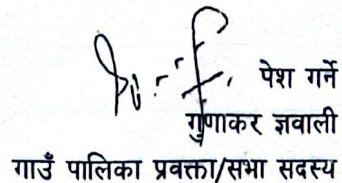 पेश गर्ने
गुणाकर ज्ञवाली
गाउँ पालिका प्रवक्ता/सभा सदस्य